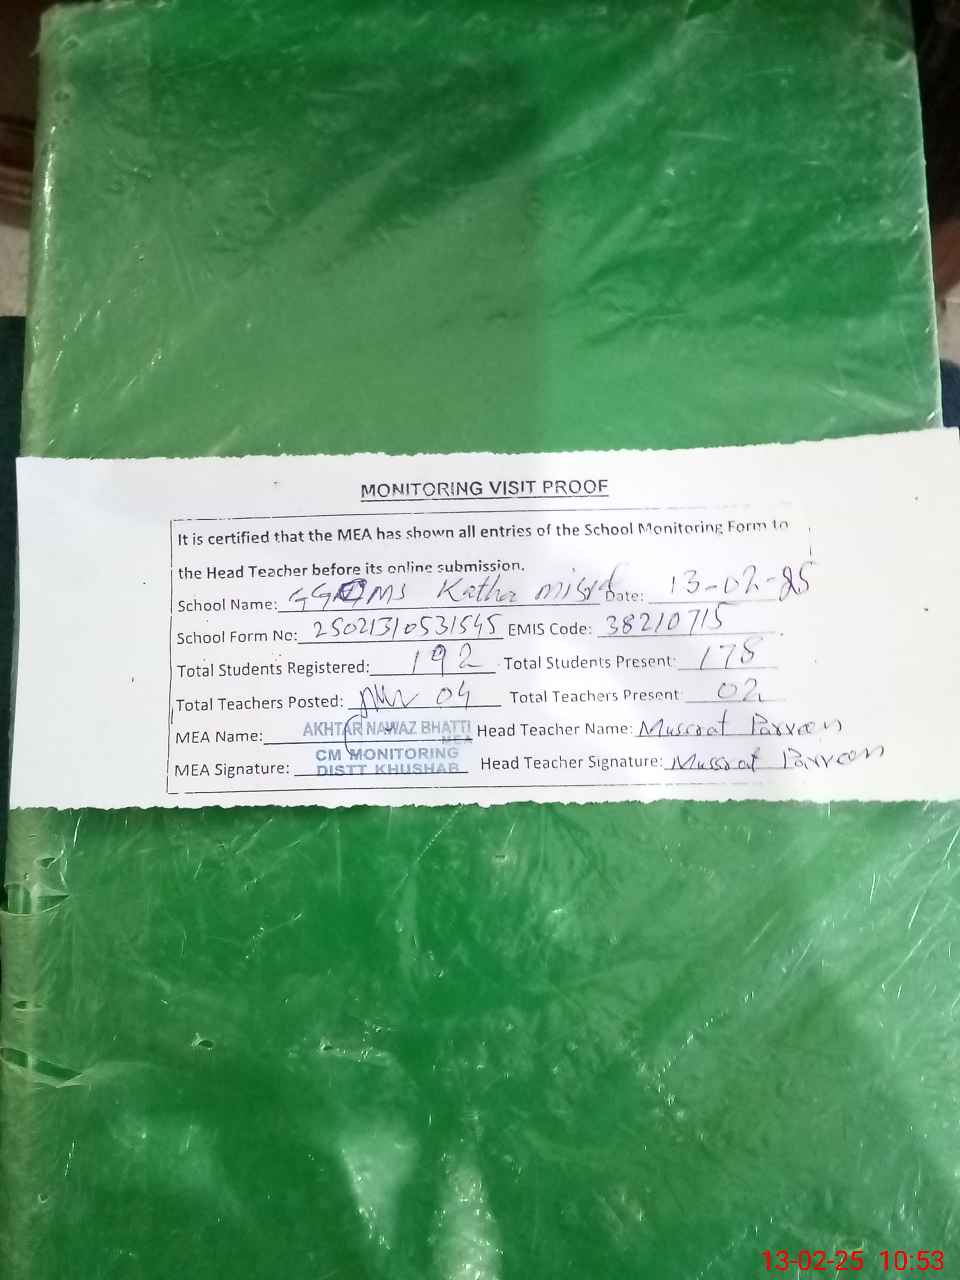 MONITORING VISIT PROOF
It is certified that the MEA has shown all entries of the School Monitoring Form to
the Head Teacher before its online submission.
School Name: Katha misral Date: 13-02-25
School Form No: 25021310531545 EMIS Code: 38210715
Total Students Registered: 192 Total Students Present: 178
Total Teachers Posted: 04 Total Teachers Present 02
MEA Name: AKHTAR NAWAZ BHATTI Head Teacher Name: Mussrat Parveen
MEA
CM MONITORING
MEA Signature: DISTT KHUSHAB Head Teacher Signature: Mussrat Parveen
13-02-25 10:53